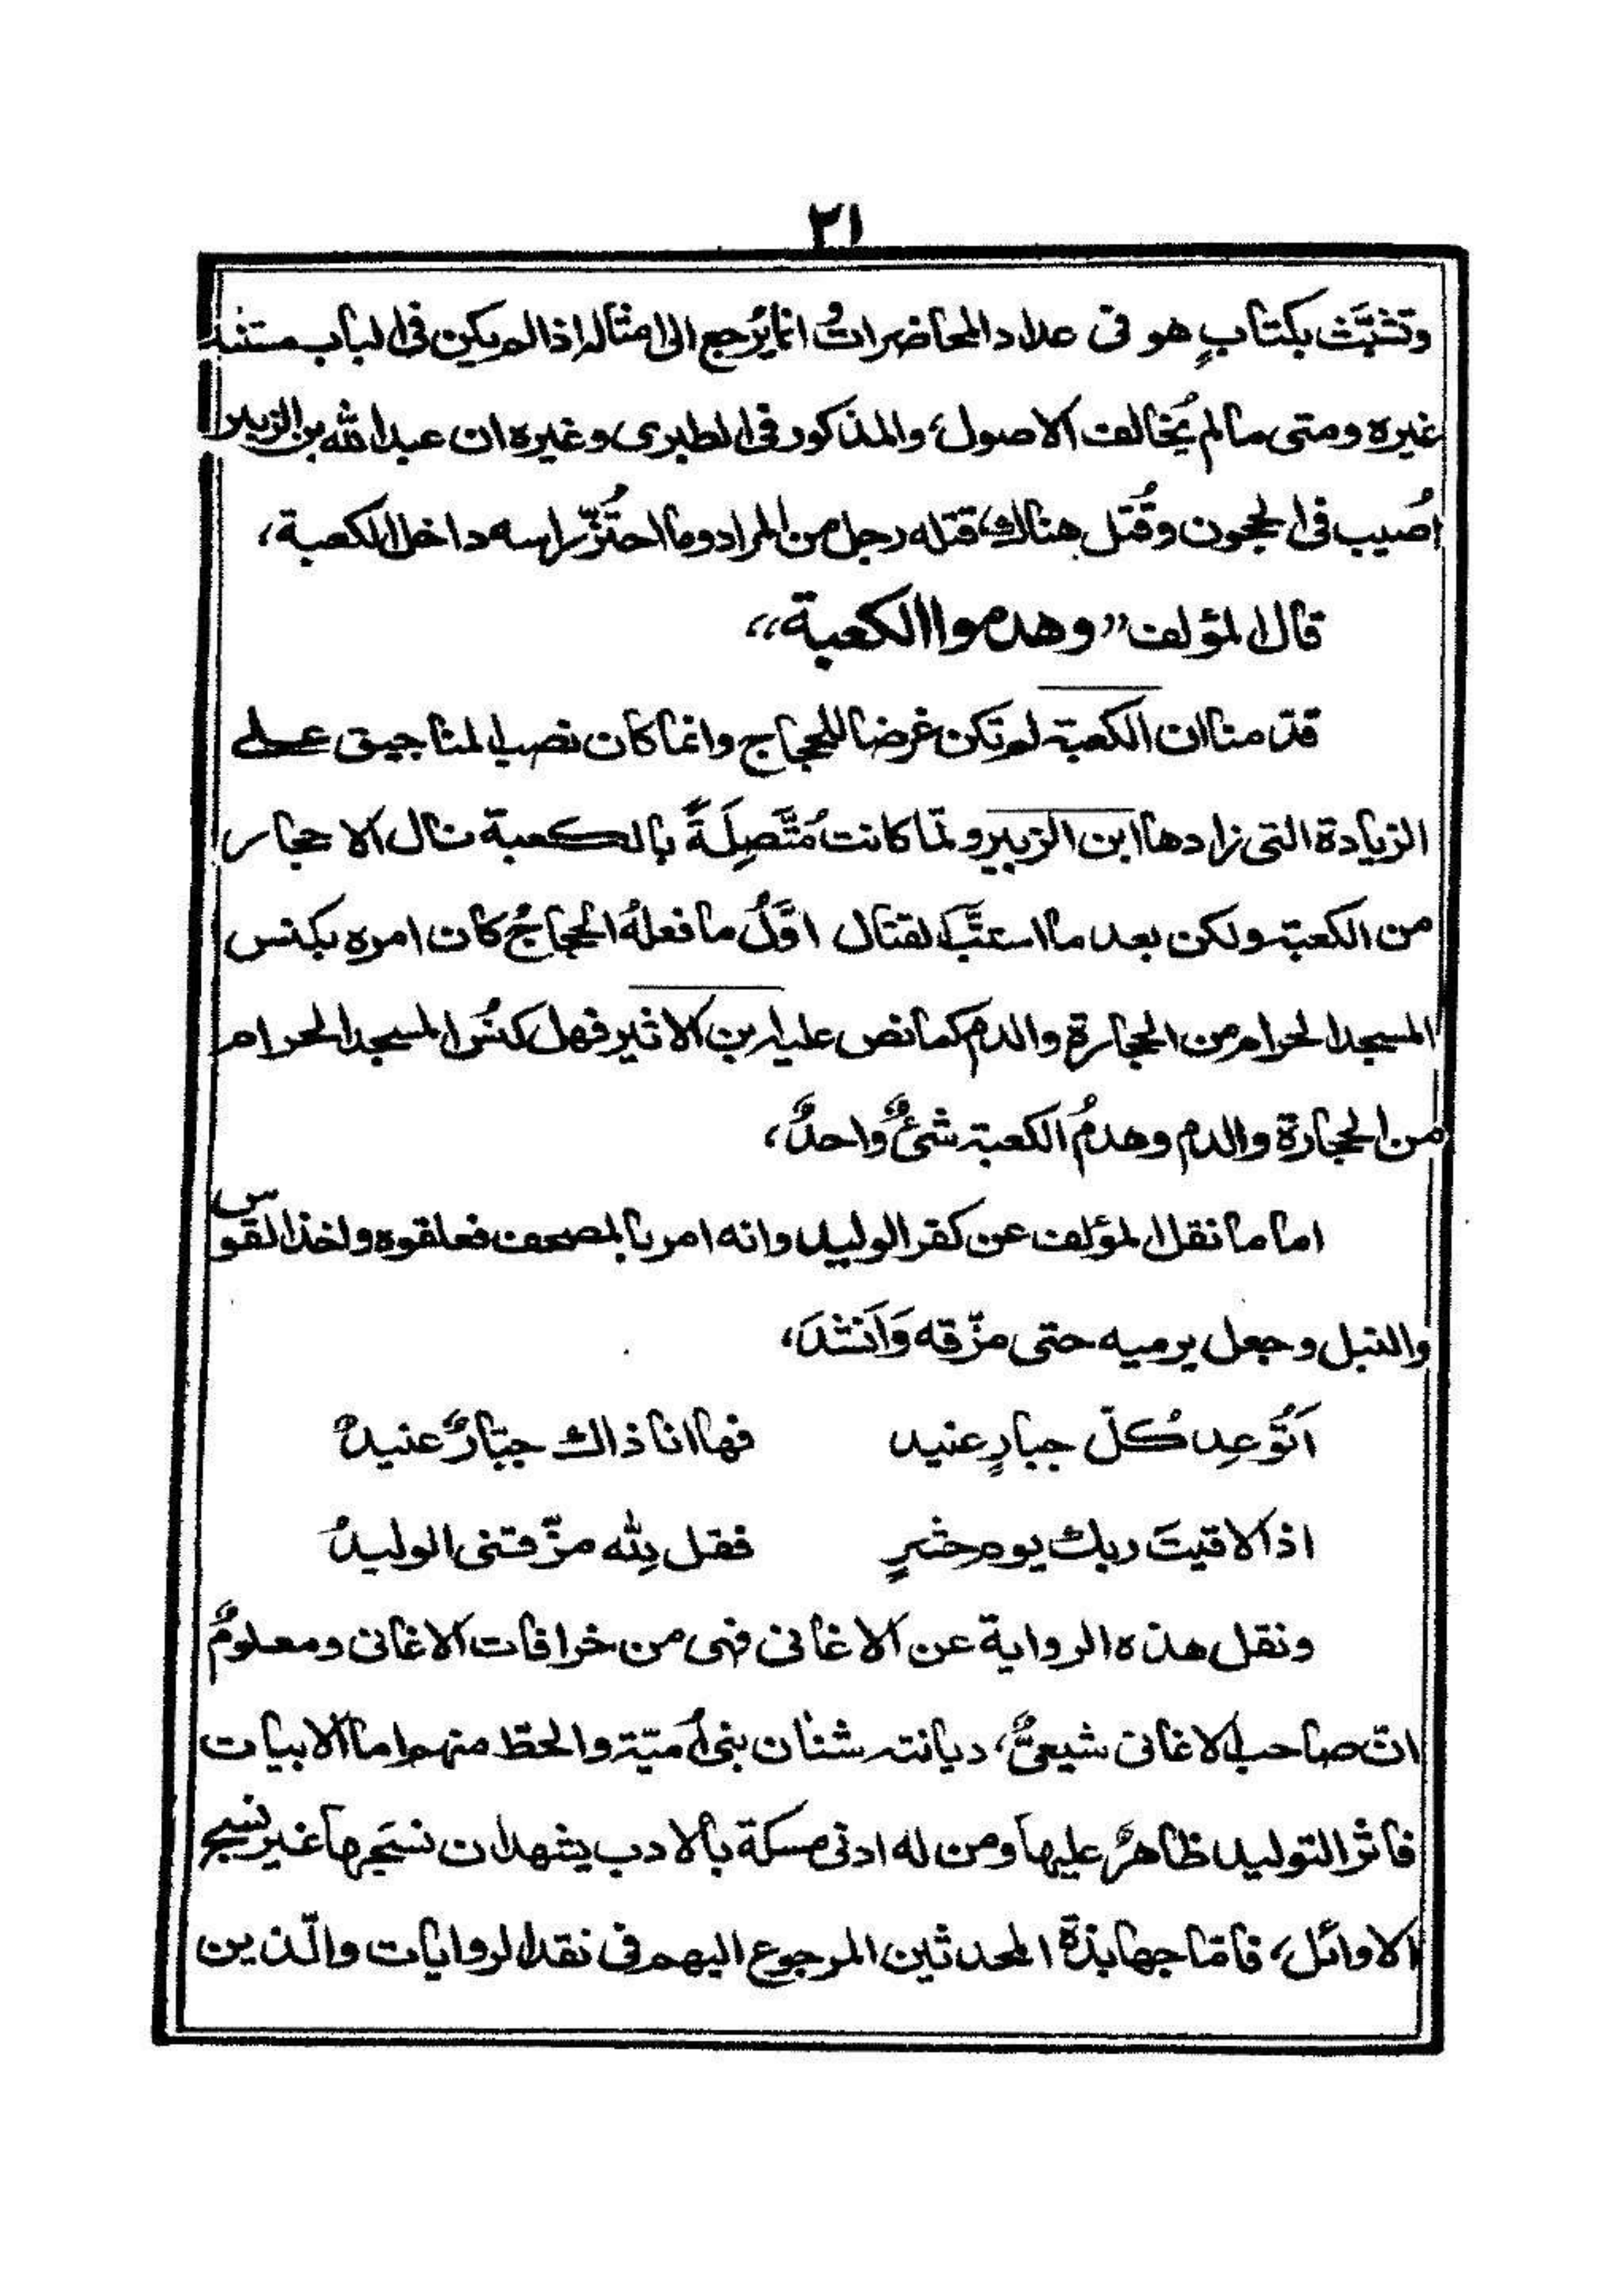 ٢١
وتشبَّث بكتابٍ هو فى عداد المحاضرات وُانما يُرجع الى امثاله اذا لم يكن فى الباب مستند
غيره ومتى ما لم يُخالف الاصول، والمذكور فى الطبرى وغيره ان عبد الله بن الزبير
اُصيب فى الحجون وقُتل هناك، قتله رجل من المراد وما احتُزّ راسه داخل الكعبة،
قال المؤلف ”وهدموا الكعبة“
قدّمنا ان الكعبة لم تكن غرضا للحجاج وانما كان نصب المناجيق على
الزيادة التى زادها ابن الزبير ولمّا كانت مُتَّصِلَةً بالكعبة نال الاحجار
من الكعبة ولكن بعد ما استتبَّ القتال اوَّلُ ما فعلهُ الحجاجُ كان امره بكنس
المسجد الحرام من الحجارة والدم كما نص عليه ابن الاثير فهل كنسُ المسجد الحرام
من الحجارة والدم وهدمُ الكعبة شئٌ واحدٌ،
اما ما نقل المؤلف عن كفر الوليد وانه امر بالمصحف فعلقوه واخذ القوس
والنبل وجعل يرميه حتى مزّقه وَاَنشدَ،
اَتُوَعِد كُلّ جبارٍ عنيد فها انا ذاك جبّارٌ عنيدٌ
اذا لاقيتَ ربك يوم حشرٍ فقل لله مزّقنى الوليدُ
ونقل هذه الرواية عن الاغانى فهى من خرافات الاغانى ومعلومٌ
انّ صاحب الاغانى شيعىٌّ، ديانته شنان بنى اُميّة والحظ منهم اما الابيات
فاثر التوليد ظاهرٌ عليها ومن له ادنى مسكة بالادب يشهد ان نسَجها غير نسج
الاوائل، فامّا جهابذة المحدثين المرجوع اليهم فى نقد الروايات والّذين